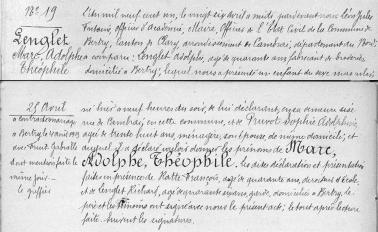 N° 19
Lenglet
Marc, Adolphe
Théophile
L'an mil neuf cent un, le vingt six avril à midi, pardevant nous Léon Jules
officier d'académie, Maire, Officier de l'Etat Civil de la Commune de
Bertry, canton de Clary, arrondissement de Cambrai, département du Nord
a comparu: Lenglet Adolphe, âgé de quarante ans, fabricant de broderies
domicilié à Bertry; lequel nous a présenté un enfant du sexe masculin,
25 Avril
a contracté mariage
à Bertry le
avec
dont mention faite le
même jour.
le greffier
né hier à neuf heures du soir, de lui déclarant, en sa demeure sise
rue de Cambrai, en cette commune, et de Pruvot Sophie Adolphine,
âgée de trente huit ans, ménagère, son épouse, de même domicile; et
auquel il a déclaré vouloir donner les prénoms de Marc,
Adolphe, Théophile. Les dites déclaration et présentation
faites en présence de Hatte François, âgé de quarante ans, directeur d'école,
et de Lenglet Richard, âgé de quarante ans, domiciliés à Bertry. Le
père et les témoins ont signé avec nous le présent acte; le tout après lecture
faite. Suivent les signatures.